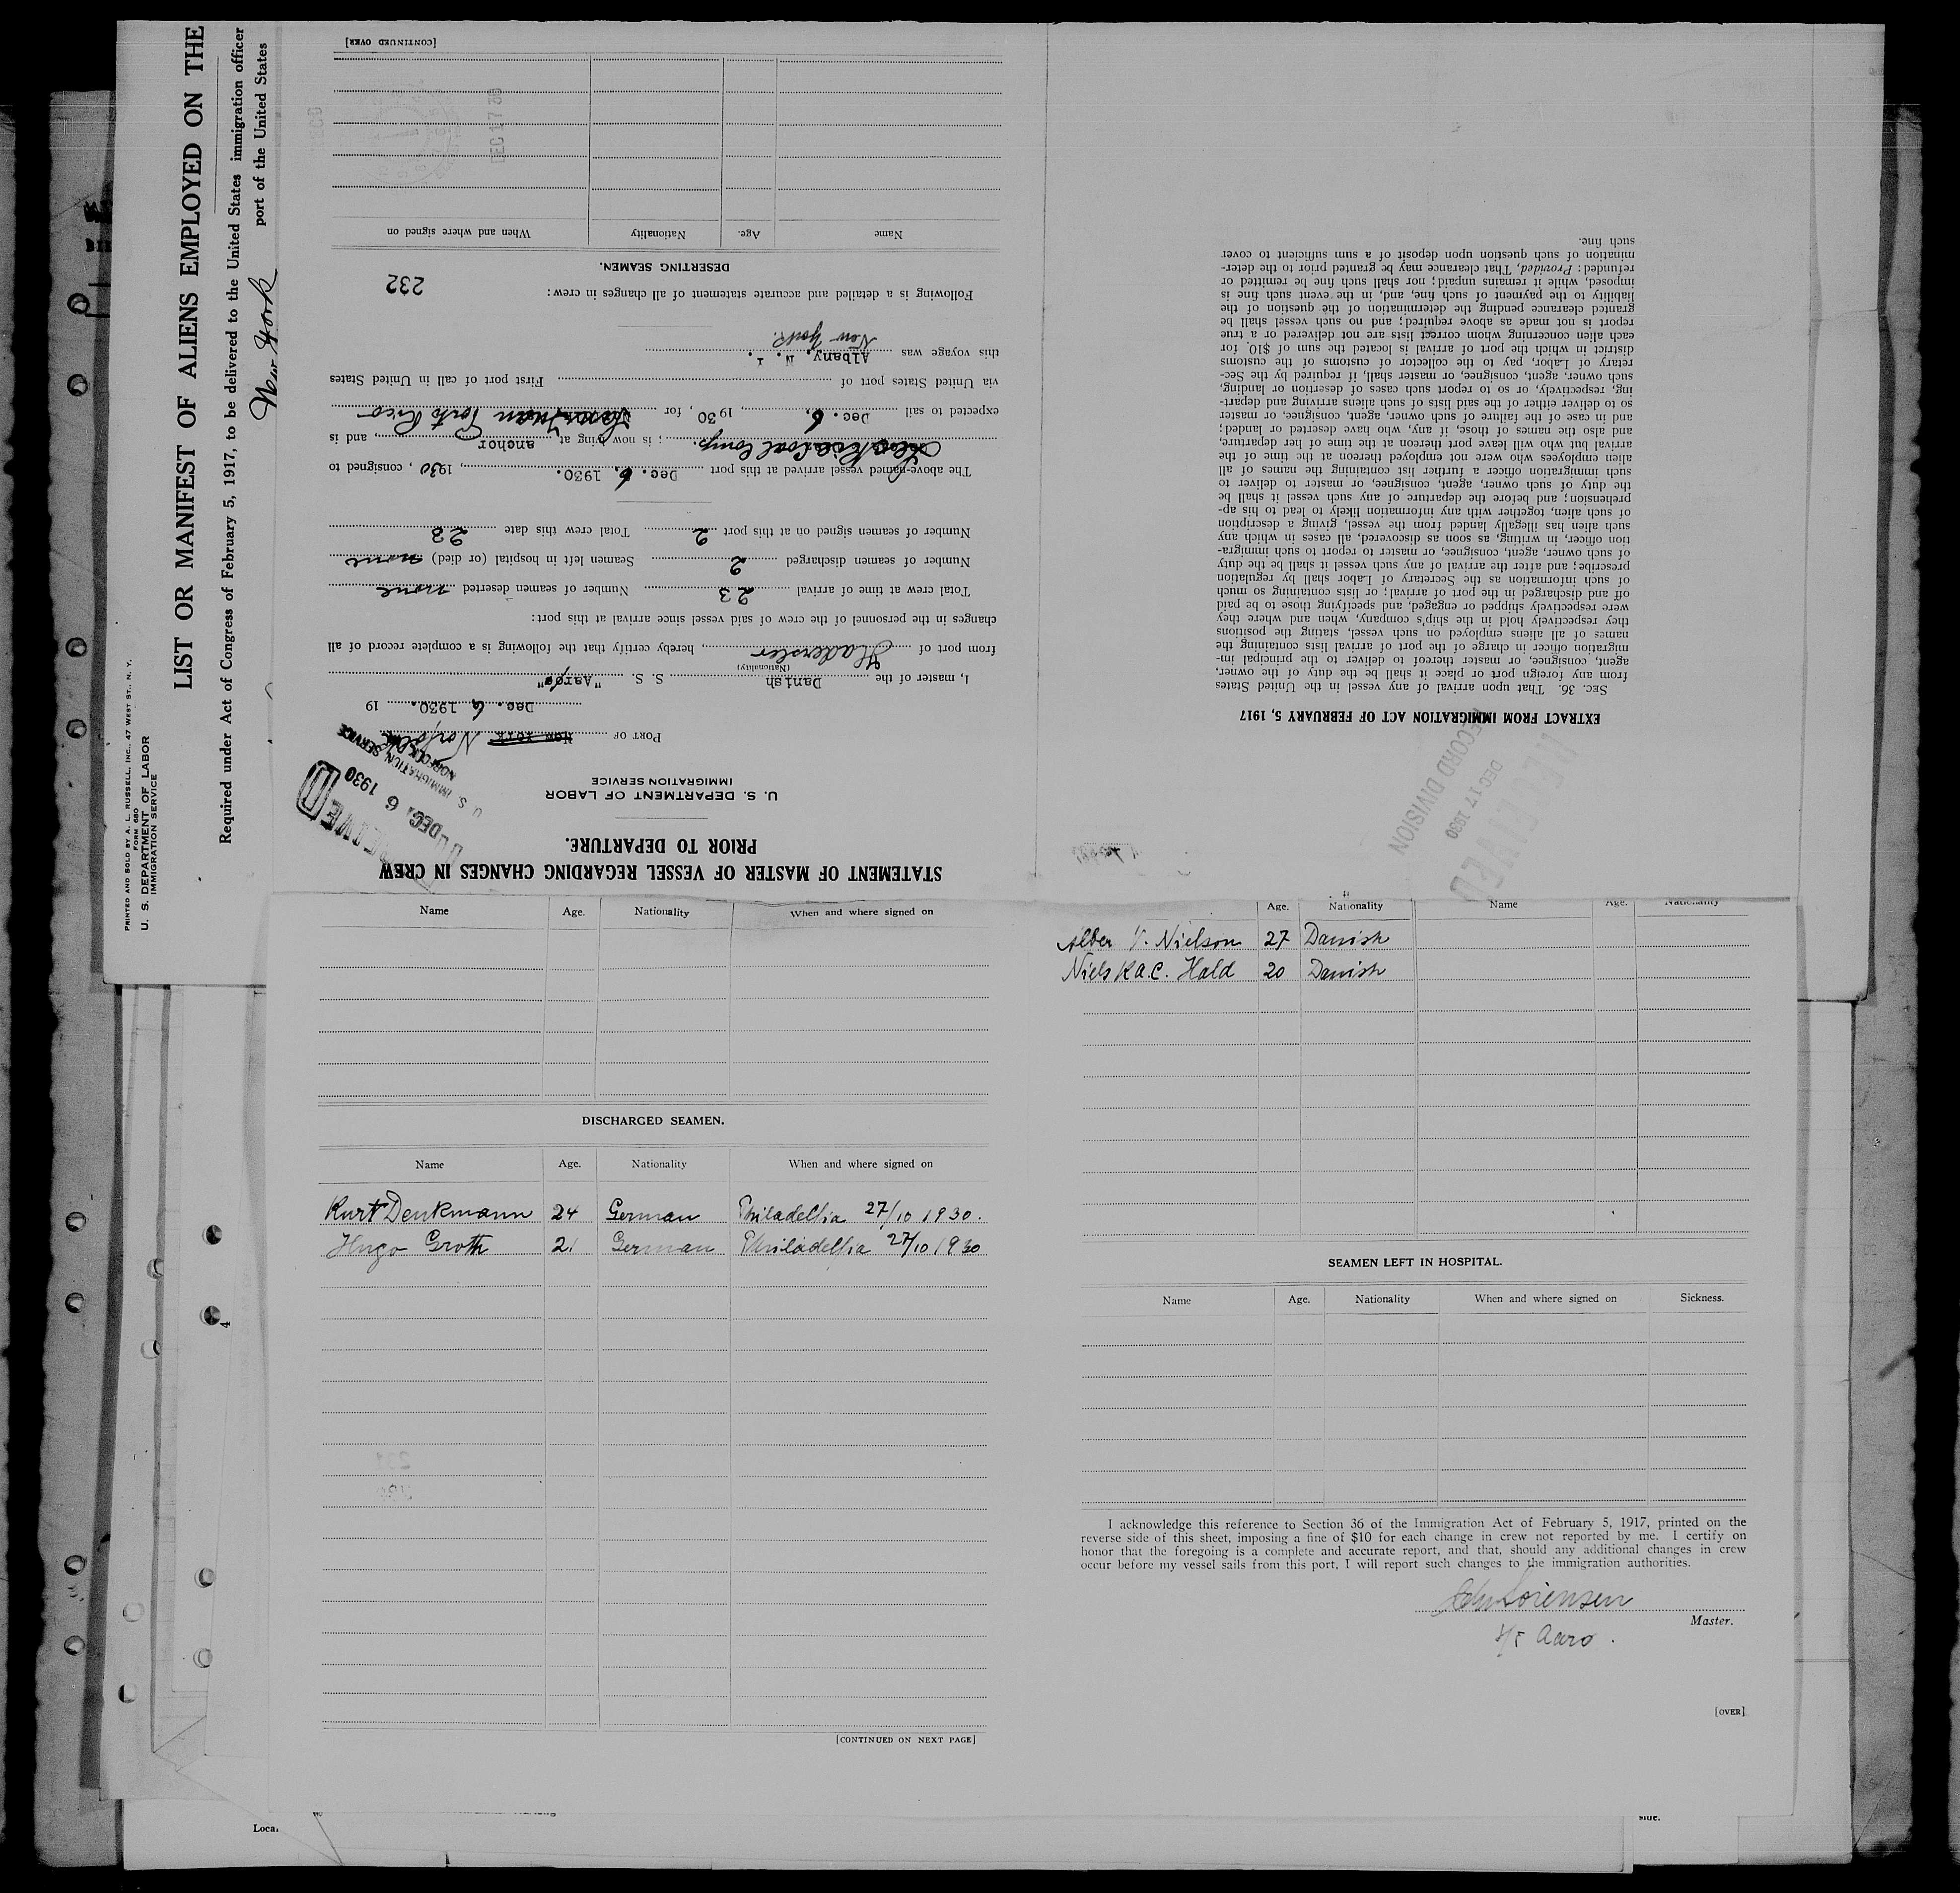 PRINTED AND SOLD BY A. L. RUSSELL, INC., 47 WEST ST., N. Y.
FORM 680
U. S. DEPARTMENT OF LABOR
IMMIGRATION SERVICE
LIST OR MANIFEST OF ALIENS EMPLOYED ON THE
Required under Act of Congress of February 5, 1917, to be delivered to the United States immigration officer
port of the United States
New York
STATEMENT OF MASTER OF VESSEL REGARDING CHANGES IN CREW
PRIOR TO DEPARTURE.
U. S. DEPARTMENT OF LABOR
IMMIGRATION SERVICE
RECEIVED
DEC. 6 1930
U. S. IMMIGRATION SERVICE
NORFOLK
PORT OF New York Norfolk
Dec. 6 1930. 19
I, master of the Danish S. S. "Aaro"
(Nationality)
from port of Haderslev, hereby certify that the following is a complete record of all
changes in the personnel of the crew of said vessel since arrival at this port:
Total crew at time of arrival 23 Number of seamen deserted none
Number of seamen discharged 2 Seamen left in hospital (or died) none
Number of seamen signed on at this port 2 Total crew this date 23
The above-named vessel arrived at this port Dec. 6 1930., 1930, consigned to
Coal Comp. ; is now lying at anchor, and is
expected to sail Dec. 6., 1930, for San Juan Porto Rico
via United States port of First port of call in United States
this voyage was Albany, N. Y.
New York.
Following is a detailed and accurate statement of all changes in crew:
232
DESERTING SEAMEN.
Name Age. Nationality When and where signed on
DEC 17 30
[CONTINUED OVER]
EXTRACT FROM IMMIGRATION ACT OF FEBRUARY 5, 1917
SEC. 36. That upon arrival of any vessel in the United States
from any foreign port or place it shall be the duty of the owner,
agent, consignee, or master thereof to deliver to the principal im-
migration officer in charge of the port of arrival lists containing the
names of all aliens employed on such vessel, stating the positions
they respectively hold in the ship's company, when and where they
were respectively shipped or engaged, and specifying those to be paid
off and discharged in the port of arrival; or lists containing so much
of such information as the Secretary of Labor shall by regulation
prescribe; and after the arrival of any such vessel it shall be the duty
of such owner, agent, consignee, or master to report to such immigra-
tion officer, in writing, as soon as discovered, all cases in which any
such alien has illegally landed from the vessel, giving a description
of such alien, together with any information likely to lead to his ap-
prehension; and before the departure of any such vessel it shall be
the duty of such owner, agent, consignee, or master to deliver to
such immigration officer a further list containing the names of all
alien employees who were not employed thereon at the time of the
arrival but who will leave port thereon at the time of her departure,
and also the names of those, if any, who have deserted or landed;
and in case of the failure of such owner, agent, consignee, or master
so to deliver either of the said lists of such aliens arriving and depart-
ing, respectively, or so to report such cases of desertion or landing,
such owner, agent, consignee, or master, shall, if required by the Sec-
retary of Labor, pay to the collector of customs of the customs
district in which the port of arrival is located the sum of $10. for
each alien concerning whom correct lists are not delivered or a true
report is not made as above required; and no such vessel shall be
granted clearance pending the determination of the question of the
liability to the payment of such fine, and, in the event such fine is
imposed, while it remains unpaid; nor shall such fine be remitted or
refunded: Provided, That clearance may be granted prior to the deter-
mination of such question upon deposit of a sum sufficient to cover
such fine.
RECEIVED
DEC 17 1930
RECORD DIVISION
Name Age. Nationality When and where signed on
DISCHARGED SEAMEN.
Name Age. Nationality When and where signed on
Kurt Denkmann 24 German Philadelfia 27/10 1930.
Hugo Groth 21 German Philadelfia 27/10 1930
[CONTINUED ON NEXT PAGE]
Age. Nationality Name Age. Nationality
Alber V. Nielson 27 Danish
Niels K A.C. Hald 20 Danish
SEAMEN LEFT IN HOSPITAL.
Name Age. Nationality When and where signed on Sickness.
I acknowledge this reference to Section 36 of the Immigration Act of February 5, 1917, printed on the
reverse side of this sheet, imposing a fine of $10 for each change in crew not reported by me. I certify on
honor that the foregoing is a complete and accurate report, and that, should any additional changes in crew
occur before my vessel sails from this port, I will report such changes to the immigration authorities.
Sorensen
Master.
S/S Aaro.
[OVER]
4
side.